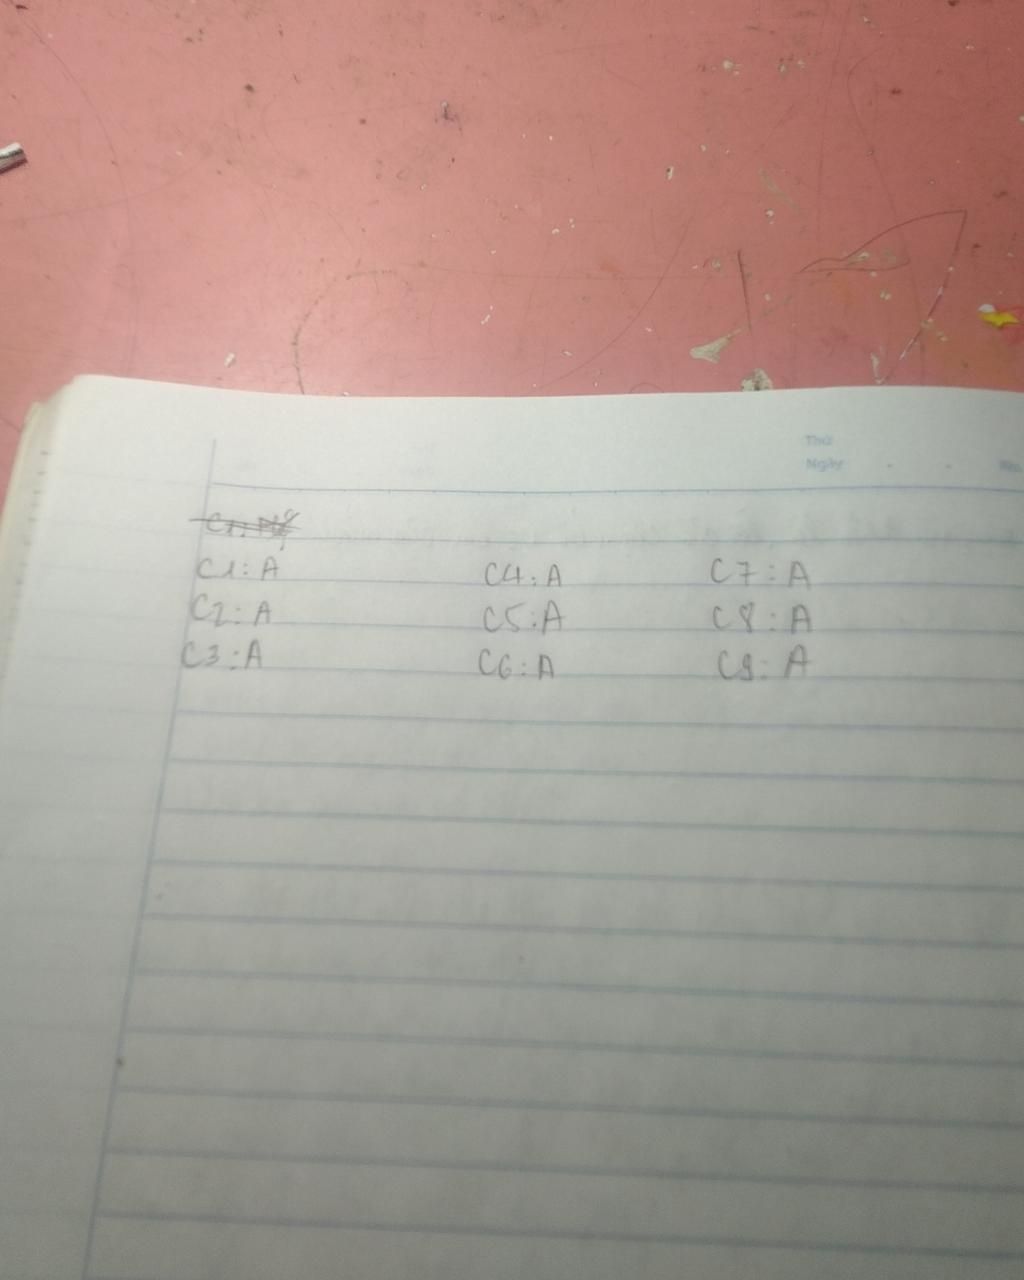 Thứ
Ngày
C1: A C4: A C7: A
C2: A C5: A C8: A
C3: A C6: A C9: A